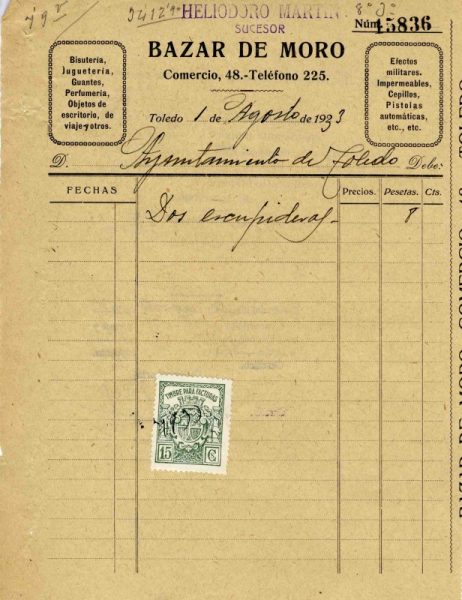 HELIODORO MARTIN
SUCESOR
Núm. 15836
BAZAR DE MORO
Comercio, 48.-Teléfono 225.
Bisutería,
Juguetería,
Guantes,
Perfumería,
Objetos de
escritorio, de
viaje y otros.
Efectos
militares.
Impermeables,
Cepillos,
Pistolas
automáticas,
etc., etc.
Toledo 1 de Agosto de 1933
D. Ayuntamiento de Toledo Debe:
FECHAS Precios. Pesetas. Cts.
Dos escupideras 8
TIMBRE PARA FACTURAS
15 Cs
BAZAR DE MORO COMERCIO, 48 TOLEDO